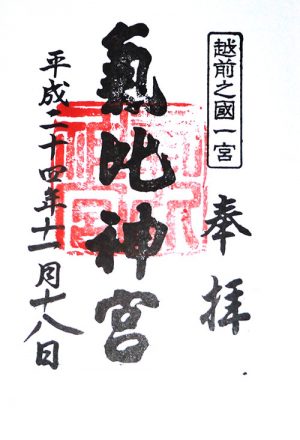 越前之國一宮
奉拝
氣比神宮
平成二十四年十一月十八日